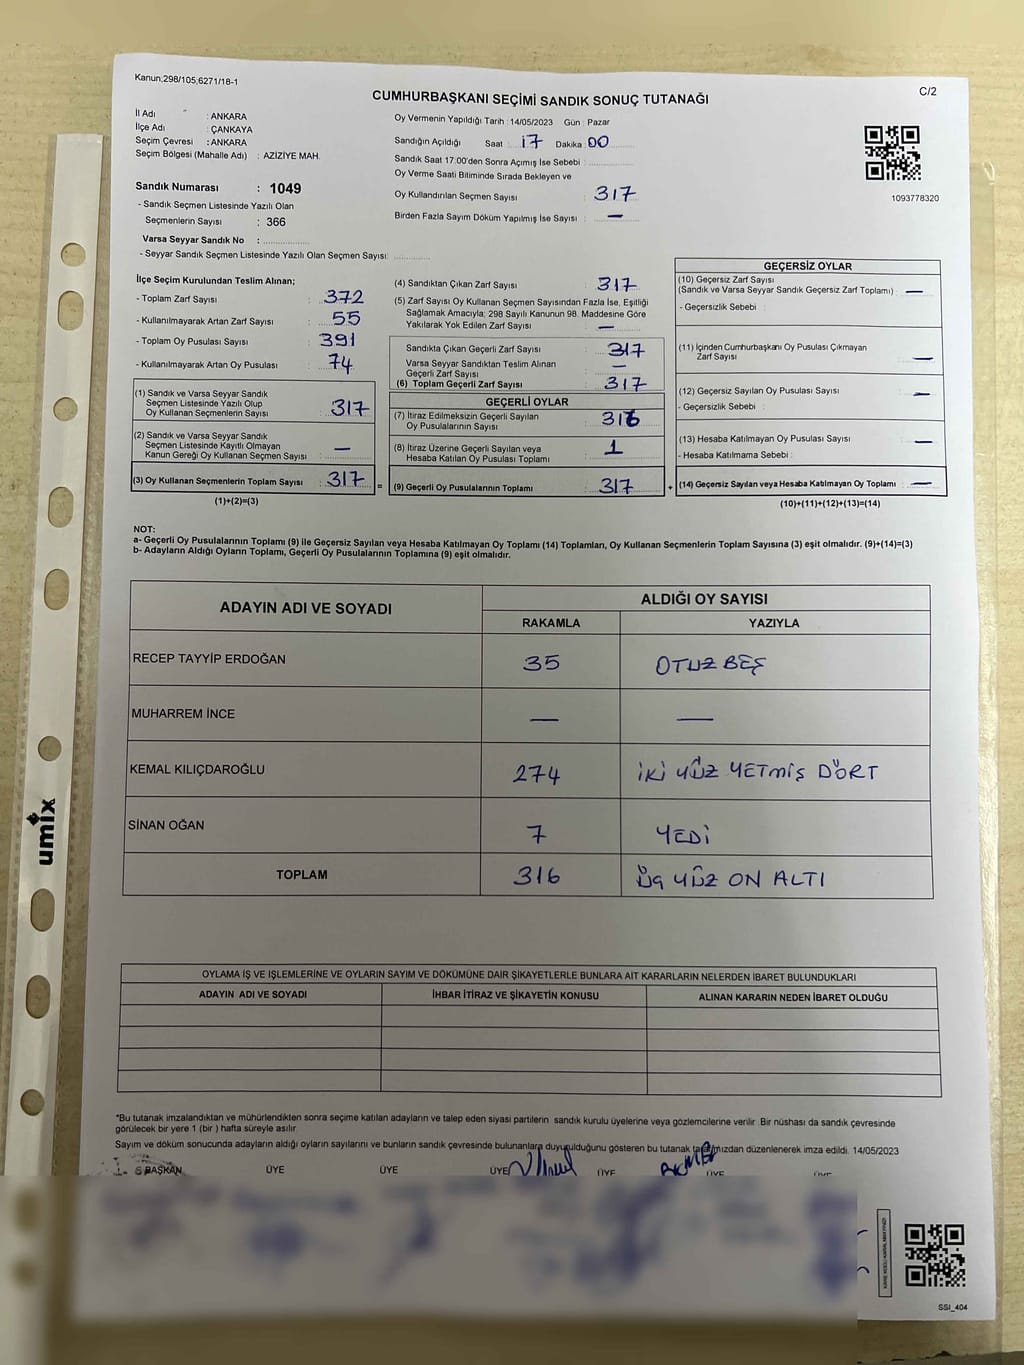 Kanun;298/105,6271/18-1
C/2
CUMHURBAŞKANI SEÇİMİ SANDIK SONUÇ TUTANAĞI
İl Adı : ANKARA
İlçe Adı : ÇANKAYA
Seçim Çevresi : ANKARA
Seçim Bölgesi (Mahalle Adı) : AZİZİYE MAH.
Sandık Numarası : 1049
- Sandık Seçmen Listesinde Yazılı Olan
Seçmenlerin Sayısı : 366
Varsa Seyyar Sandık No :
- Seyyar Sandık Seçmen Listesinde Yazılı Olan Seçmen Sayısı:
Oy Vermenin Yapıldığı Tarih : 14/05/2023 Gün : Pazar
Sandığın Açıldığı Saat : 17 Dakika : 00
Sandık Saat 17:00'den Sonra Açımış İse Sebebi :
Oy Verme Saati Bitiminde Sırada Bekleyen ve
Oy Kullandırılan Seçmen Sayısı : 317
Birden Fazla Sayım Döküm Yapılmış İse Sayısı : —
1093778320
İlçe Seçim Kurulundan Teslim Alınan;
- Toplam Zarf Sayısı : 372
- Kullanılmayarak Artan Zarf Sayısı : 55
- Toplam Oy Pusulası Sayısı : 391
- Kullanılmayarak Artan Oy Pusulası : 74
(1) Sandık ve Varsa Seyyar Sandık
Seçmen Listesinde Yazılı Olup
Oy Kullanan Seçmenlerin Sayısı : 317
(2) Sandık ve Varsa Seyyar Sandık
Seçmen Listesinde Kayıtlı Olmayan
Kanun Gereği Oy Kullanan Seçmen Sayısı : —
(3) Oy Kullanan Seçmenlerin Toplam Sayısı : 317
(1)+(2)=(3)
(4) Sandıktan Çıkan Zarf Sayısı : 317
(5) Zarf Sayısı Oy Kullanan Seçmen Sayısından Fazla İse, Eşitliği
Sağlamak Amacıyla; 298 Sayılı Kanunun 98. Maddesine Göre
Yakılarak Yok Edilen Zarf Sayısı : —
Sandıkta Çıkan Geçerli Zarf Sayısı : 317
Varsa Seyyar Sandıktan Teslim Alınan
Geçerli Zarf Sayısı : —
(6) Toplam Geçerli Zarf Sayısı : 317
GEÇERLİ OYLAR
(7) İtiraz Edilmeksizin Geçerli Sayılan
Oy Pusulalarının Sayısı : 316
(8) İtiraz Üzerine Geçerli Sayılan veya
Hesaba Katılan Oy Pusulası Toplamı : 1
= (9) Geçerli Oy Pusulalarının Toplamı : 317 +
GEÇERSİZ OYLAR
(10) Geçersiz Zarf Sayısı
(Sandık ve Varsa Seyyar Sandık Geçersiz Zarf Toplamı) : —
- Geçersizlik Sebebi :
(11) İçinden Cumhurbaşkanı Oy Pusulası Çıkmayan
Zarf Sayısı : —
(12) Geçersiz Sayılan Oy Pusulası Sayısı : —
- Geçersizlik Sebebi :
(13) Hesaba Katılmayan Oy Pusulası Sayısı : —
- Hesaba Katılmama Sebebi :
(14) Geçersiz Sayılan veya Hesaba Katılmayan Oy Toplamı : —
(10)+(11)+(12)+(13)=(14)
NOT:
a- Geçerli Oy Pusulalarının Toplamı (9) ile Geçersiz Sayılan veya Hesaba Katılmayan Oy Toplamı (14) Toplamları, Oy Kullanan Seçmenlerin Toplam Sayısına (3) eşit olmalıdır. (9)+(14)=(3)
b- Adayların Aldığı Oyların Toplamı, Geçerli Oy Pusulalarının Toplamına (9) eşit olmalıdır.
ADAYIN ADI VE SOYADI ALDIĞI OY SAYISI
RAKAMLA YAZIYLA
RECEP TAYYİP ERDOĞAN 35 OTUZ BEŞ
MUHARREM İNCE — —
KEMAL KILIÇDAROĞLU 274 İKİ YÜZ YETMİŞ DÖRT
SİNAN OĞAN 7 YEDİ
TOPLAM 316 ÜÇ YÜZ ON ALTI
OYLAMA İŞ VE İŞLEMLERİNE VE OYLARIN SAYIM VE DÖKÜMÜNE DAİR ŞİKAYETLERLE BUNLARA AİT KARARLARIN NELERDEN İBARET BULUNDUKLARI
ADAYIN ADI VE SOYADI İHBAR İTİRAZ VE ŞİKAYETİN KONUSU ALINAN KARARIN NEDEN İBARET OLDUĞU
*Bu tutanak imzalandıktan ve mühürlendikten sonra seçime katılan adayların ve talep eden siyasi partilerin sandık kurulu üyelerine veya gözlemcilerine verilir. Bir nüshası da sandık çevresinde
görülecek bir yere 1 (bir) hafta süreyle asılır.
Sayım ve döküm sonucunda adayların aldığı oyların sayılarını ve bunların sandık çevresinde bulunanlara duyurulduğunu gösteren bu tutanak tarafımızdan düzenlenerek imza edildi. 14/05/2023
BAŞKAN ÜYE ÜYE ÜYE ÜYE ÜYE ÜYE
SSI_404
umix